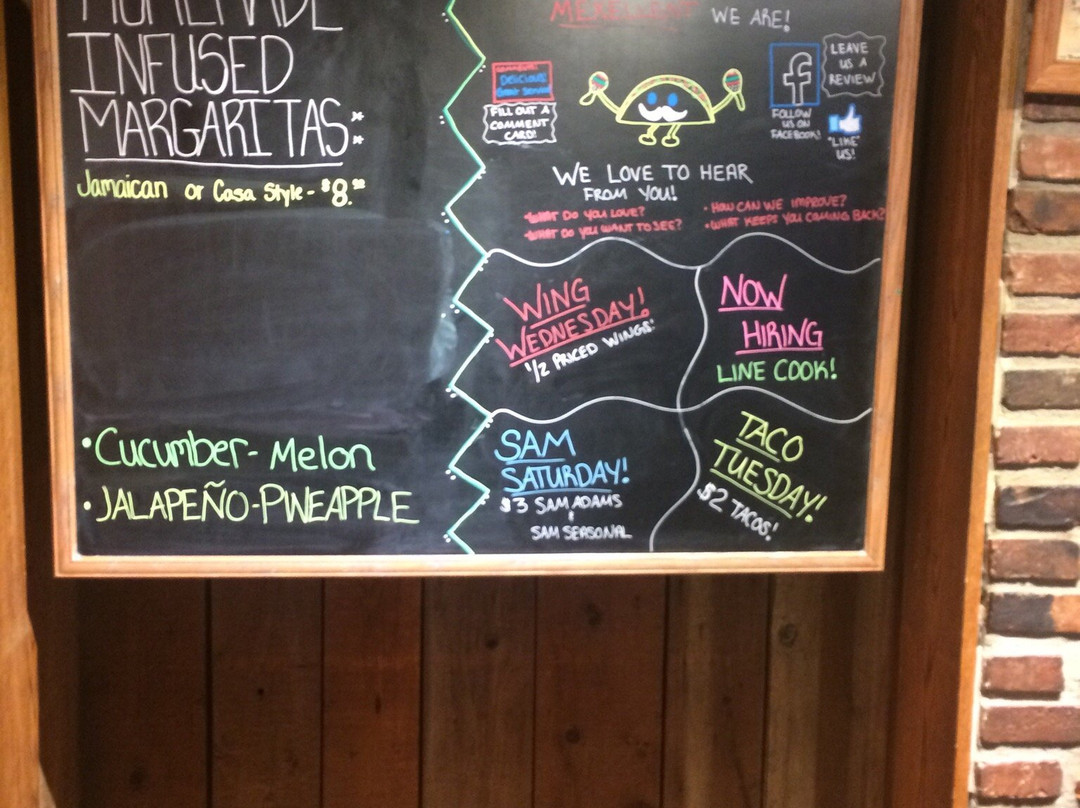 HOMEMADE
INFUSED
MARGARITAS**
Jamaican or Casa Style - $8.00
•Cucumber-Melon
•JALAPEÑO-PINEAPPLE
WE ARE!
DELICIOUS
GREAT SERVICE
FILL OUT A
COMMENT
CARD!
f
FOLLOW
US ON
FACEBOOK!
LEAVE
US A
REVIEW
"LIKE"
US!
WE LOVE TO HEAR
FROM YOU!
•WHAT DO YOU LOVE?
•WHAT DO YOU WANT TO SEE?
•HOW CAN WE IMPROVE?
•WHAT KEEPS YOU COMING BACK?
WING
WEDNESDAY!
1/2 PRICED WINGS!
NOW
HIRING
LINE COOK!
SAM
SATURDAY!
$3 SAM ADAMS
&
SAM SEASONAL
TACO
TUESDAY!
$2 TACOS!